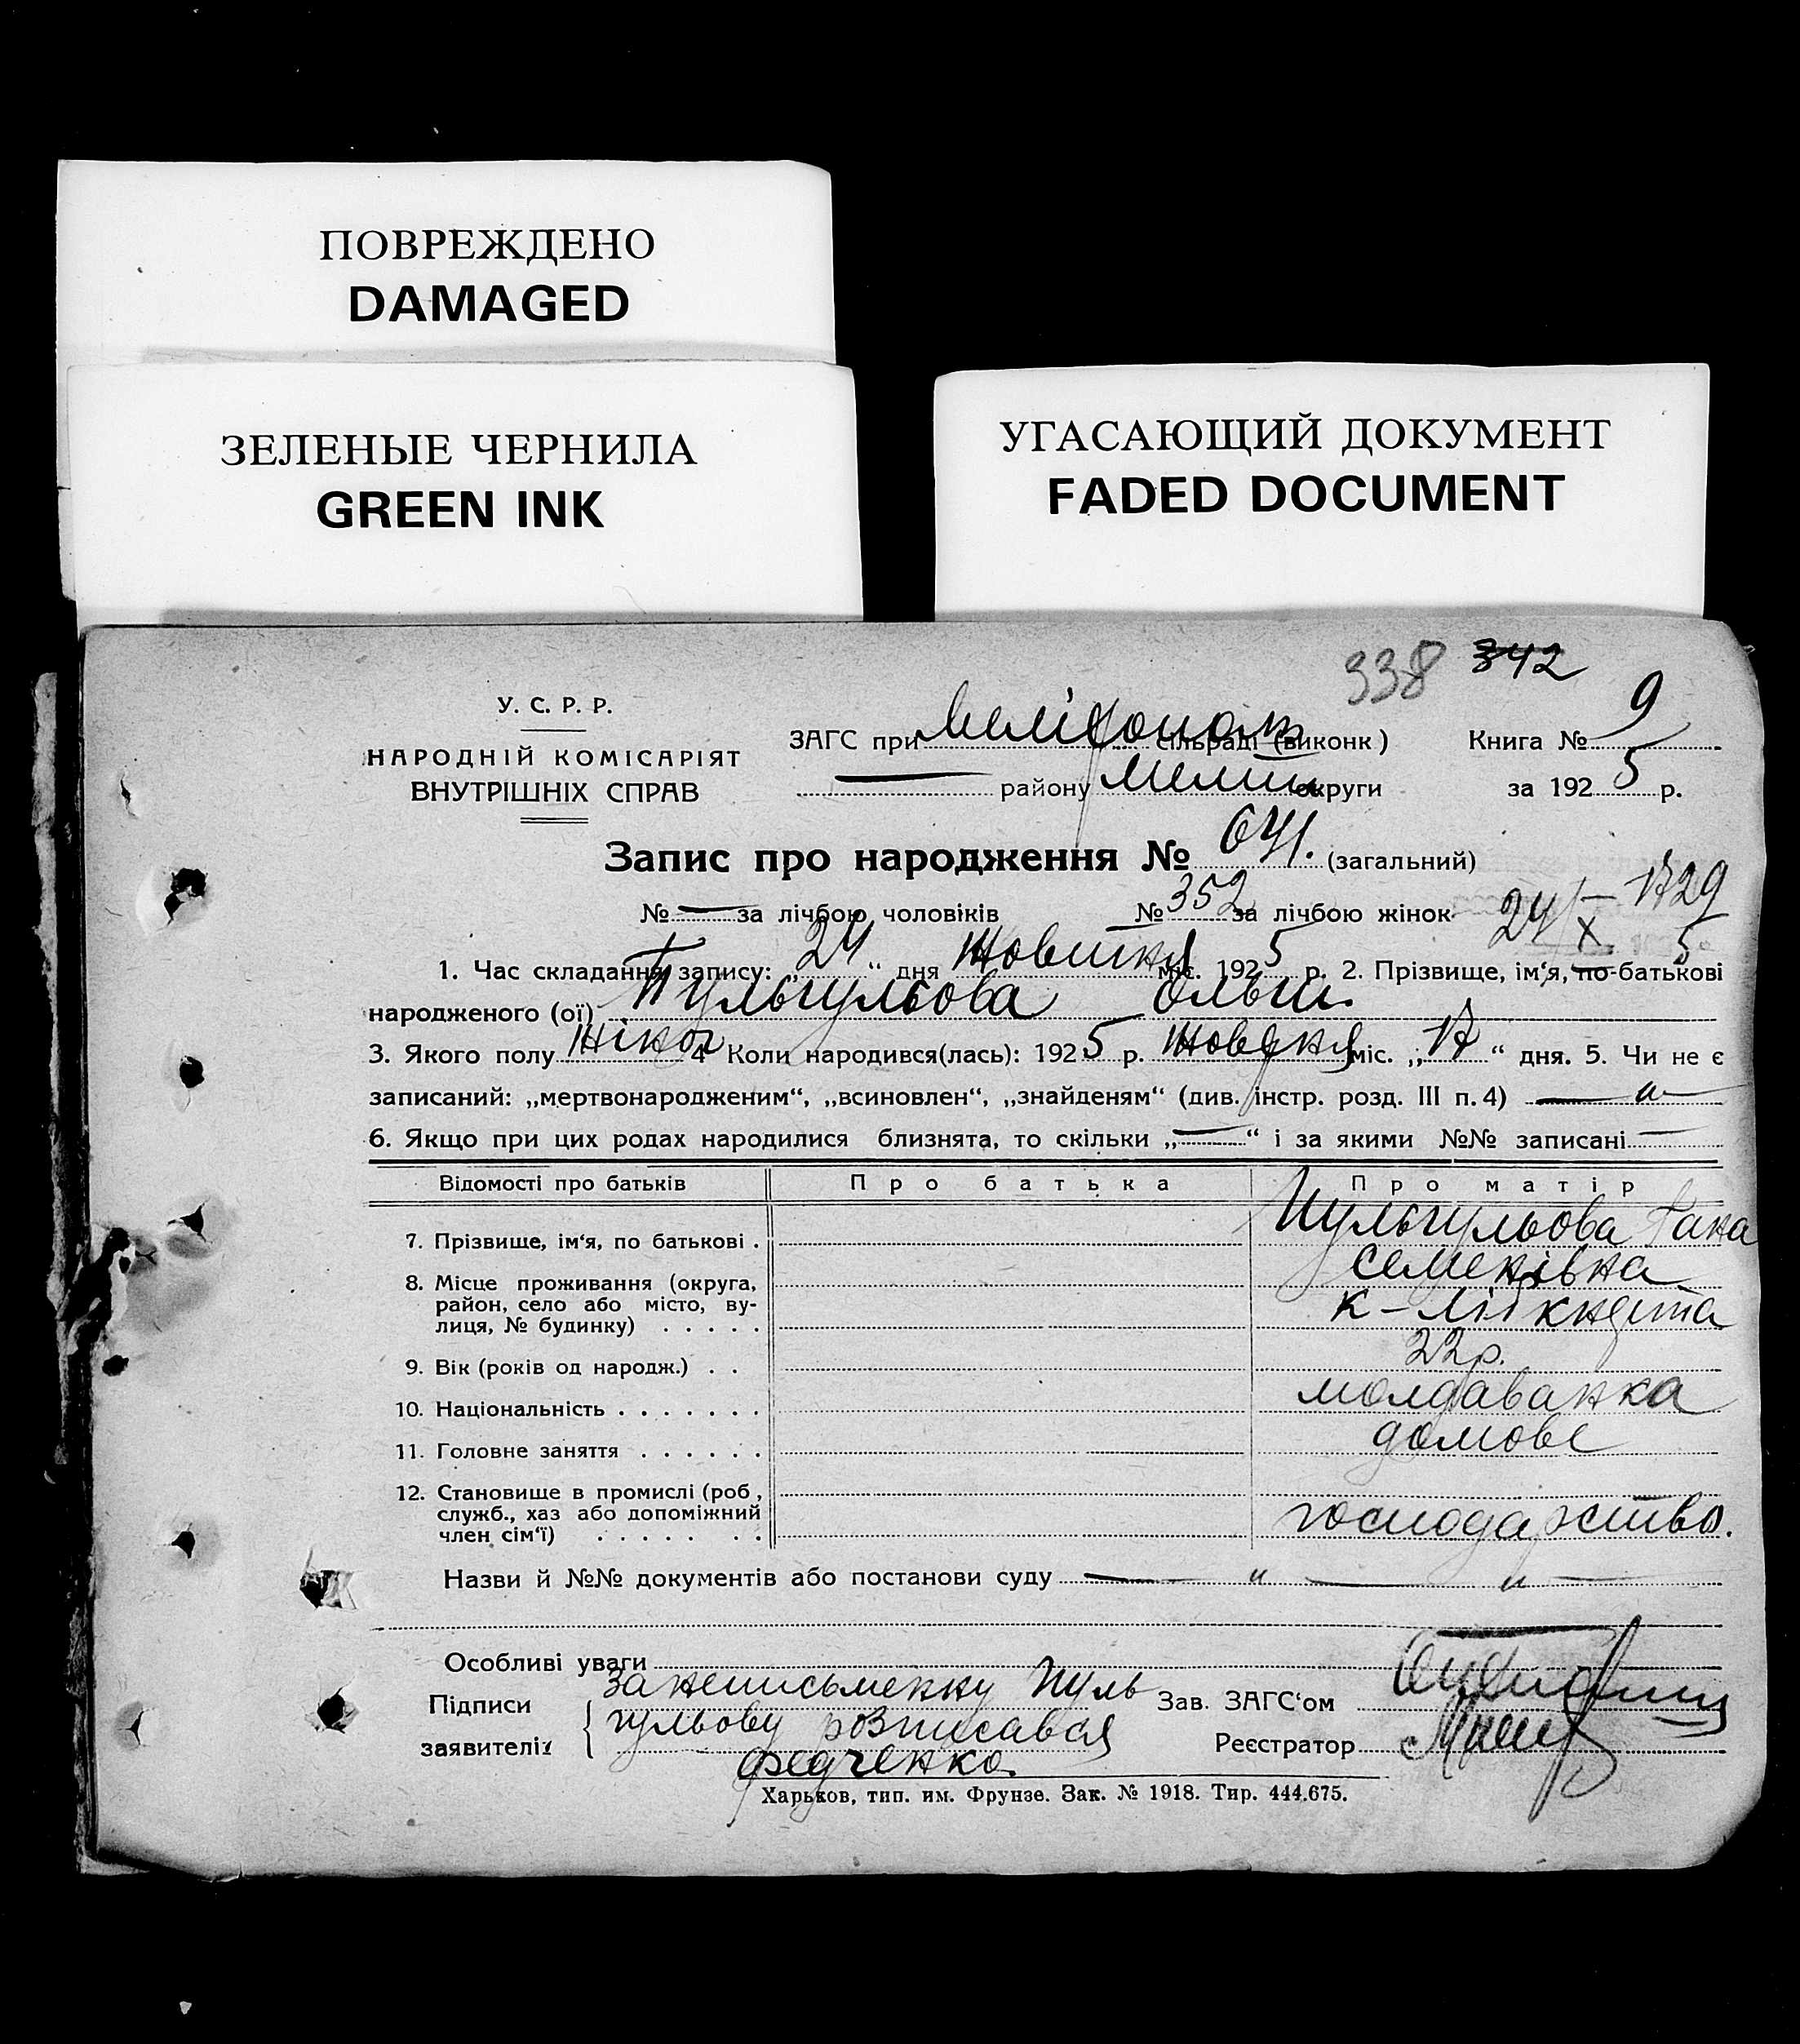 ПОВРЕЖДЕНО
DAMAGED
ЗЕЛЕНЫЕ ЧЕРНИЛА
GREEN INK
УГАСАЮЩИЙ ДОКУМЕНТ
FADED DOCUMENT
338 342
У. С. Р. Р.
НАРОДНІЙ КОМІСАРІЯТ
ВНУТРІШНІХ СПРАВ
ЗАГС при Мелітополт сільраді (виконк) Книга № 9
району Меліт округи за 1925 р.
Запис про народження № 641. (загальний)
№ — за лічбою чоловіків № 352 за лічбою жінок
24/X 1729
5
1. Час складання запису: „24“ дня Жовтня міс. 1925 р. 2. Прізвище, ім‘я, по-батькові
народженого (ої) Пульгульова Ольги.
3. Якого полу жіноч 4 Коли народився(лась): 1925 р. Жовтня міс. „17“ дня. 5. Чи не є
записаний: „мертвонародженим“, „всиновлен“, „знайденям“ (див. інстр. розд. III п. 4) — „ —
6. Якщо при цих родах народилися близнята, то скільки „—“ і за якими №№ записані —
Відомості про батьків Про батька Про матір
7. Прізвище, ім‘я, по батькові . Пульгульова Гана
Семенівна
8. Місце проживання (округа,
район, село або місто, ву-
лиця, № будинку) . . . . .
9. Вік (років од народж.) . . 22 р.
10. Національність . . . . . . . молдаванка
11. Головне заняття . . . . . . домове
12. Становище в промислі (роб,
служб., хаз або допоміжний
член сім‘ї) . . . . . . . господарство.
Назви й №№ документів або постанови суду — „ — „ —
Особливі уваги
Підписи
заявителів
За неписьменну Пуль
гульову розписався
Федченко.
Зав. ЗАГС‘ом
Реєстратор
Харьков, тип. им. Фрунзе. Зак. № 1918. Тир. 444.675.